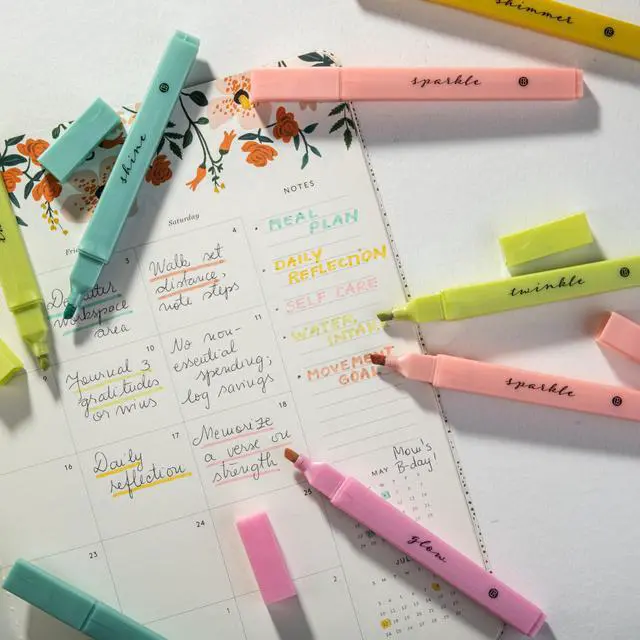 shimmer
sparkle
shine
NOTES
Saturday
Fri
3
4
MEAL
PLAN
DAILY
REFLECTION
SELF CARE
WATER
MOVEMENT
GOAL
workspace
area
Walk set
distance,
note steps
twinkle
sparkle
9
10
11
Journal 3
gratitudes
or wins
No non-
essential
spending;
log savings
16
17
18
Daily
reflection
Memorize
a verse on
strength
Mom's
B-day!
MAY
23
24
25
glow
1
2